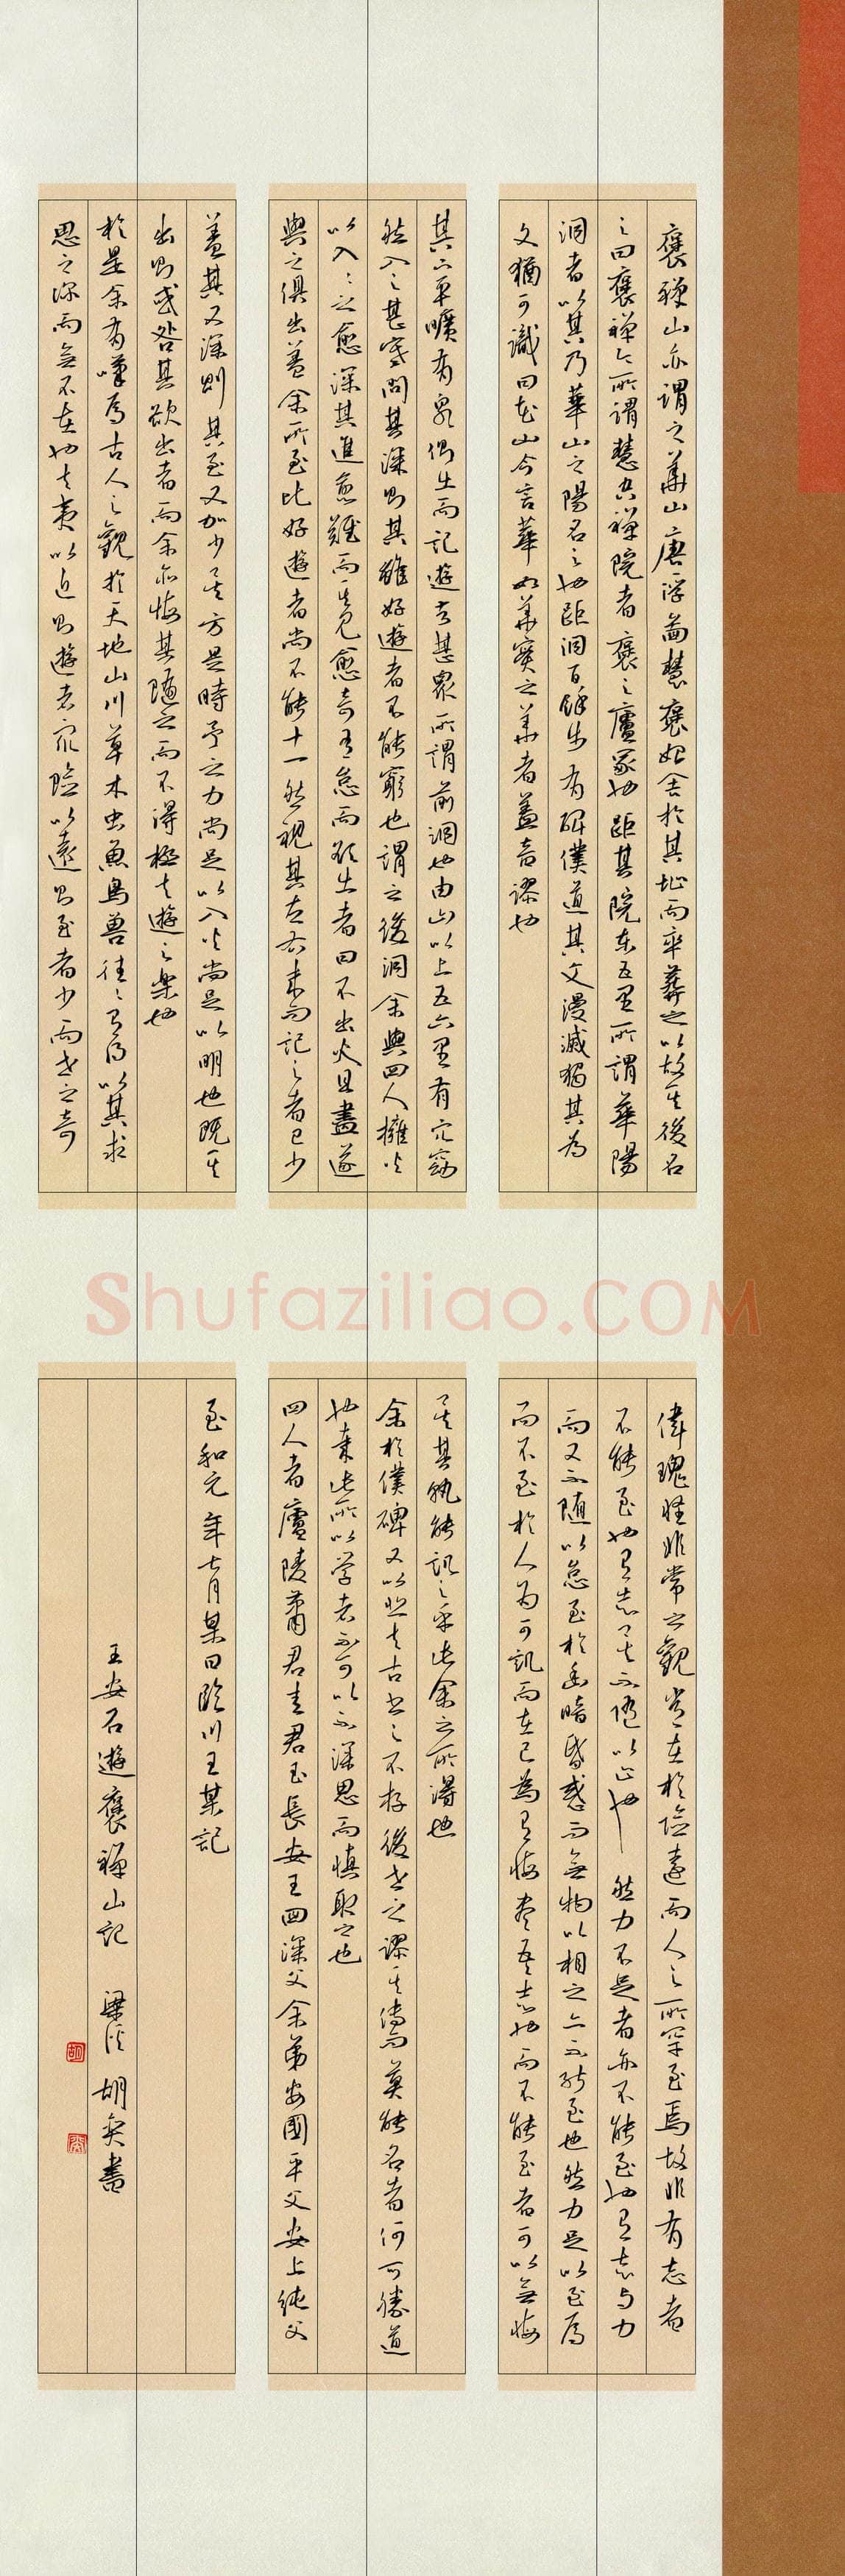 褒禪山亦謂之華山唐浮圖慧褒始舍於其址而卒葬之以故其後名
之曰褒禪今所謂慧空禪院者褒之廬冢也距其院東五里所謂華陽
洞者以其乃華山之陽名之也距洞百餘步有碑僕道其文漫滅獨其為
文猶可識曰花山今言華如華實之華者蓋音謬也
其下平曠有泉側出而記遊者甚眾所謂前洞也由山以上五六里有穴窈
然入之甚寒問其深則其雖好遊者不能窮也謂之後洞余與四人擁火
以入入之愈深其進愈難而其見愈奇有怠而欲出者曰不出火且盡遂
與之俱出蓋余所至比好遊者尚不能十一然視其左右來而記之者已少
蓋其又深則其至又加少矣方是時予之力尚足以入火尚足以明也既其
出則或咎其欲出者而余亦悔其隨之而不得極夫遊之樂也
於是余有嘆焉古人之觀於天地山川草木虫魚鳥獸往往有得以其求
思之深而無不在也夫夷以近則遊者眾險以遠則至者少而世之奇
偉瑰怪非常之觀常在於險遠而人之所罕至焉故非有志者
不能至也有志矣不隨以止也然力不足者亦不能至也有志與力
而又不隨以怠至於幽暗昏惑而無物以相之亦不能至也然力足以至焉
而不至於人為可譏而在己為有悔盡吾志也而不能至者可以無悔
矣其孰能譏之乎此余之所得也
余於僕碑又以悲夫古書之不存後世之謬其傳而莫能名者何可勝道
也哉此所以学者不可以不深思而慎取之也
四人者廬陵蕭君圭君玉長安王回深父余弟安國平父安上純父
至和元年七月某日臨川王某記
王安石遊褒禪山記 梁溪胡奕書